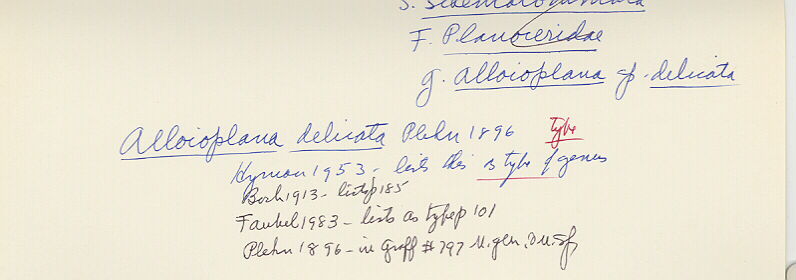 F. Planoceridae
g. Alloioplana sp. delicata
Alloioplana delicata Plehn 1896 type
Hyman 1953 - lists this as type of genus
Bock 1913 - lists p 185
Faubel 1983 - lists as type p 101
Plehn 1896 - in Graff # 797 N. gen.